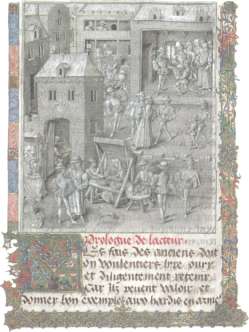 Prologue de lacteur
Les fais des anciens doit
on voulentiers lyre ouyr
et diligentement retenir
Car ilz peuent valoir et
donner bon exemple aux hardis en arme